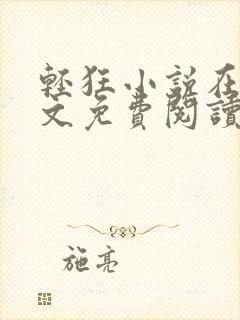 輕狂小說在
文免費閱讀
施亮